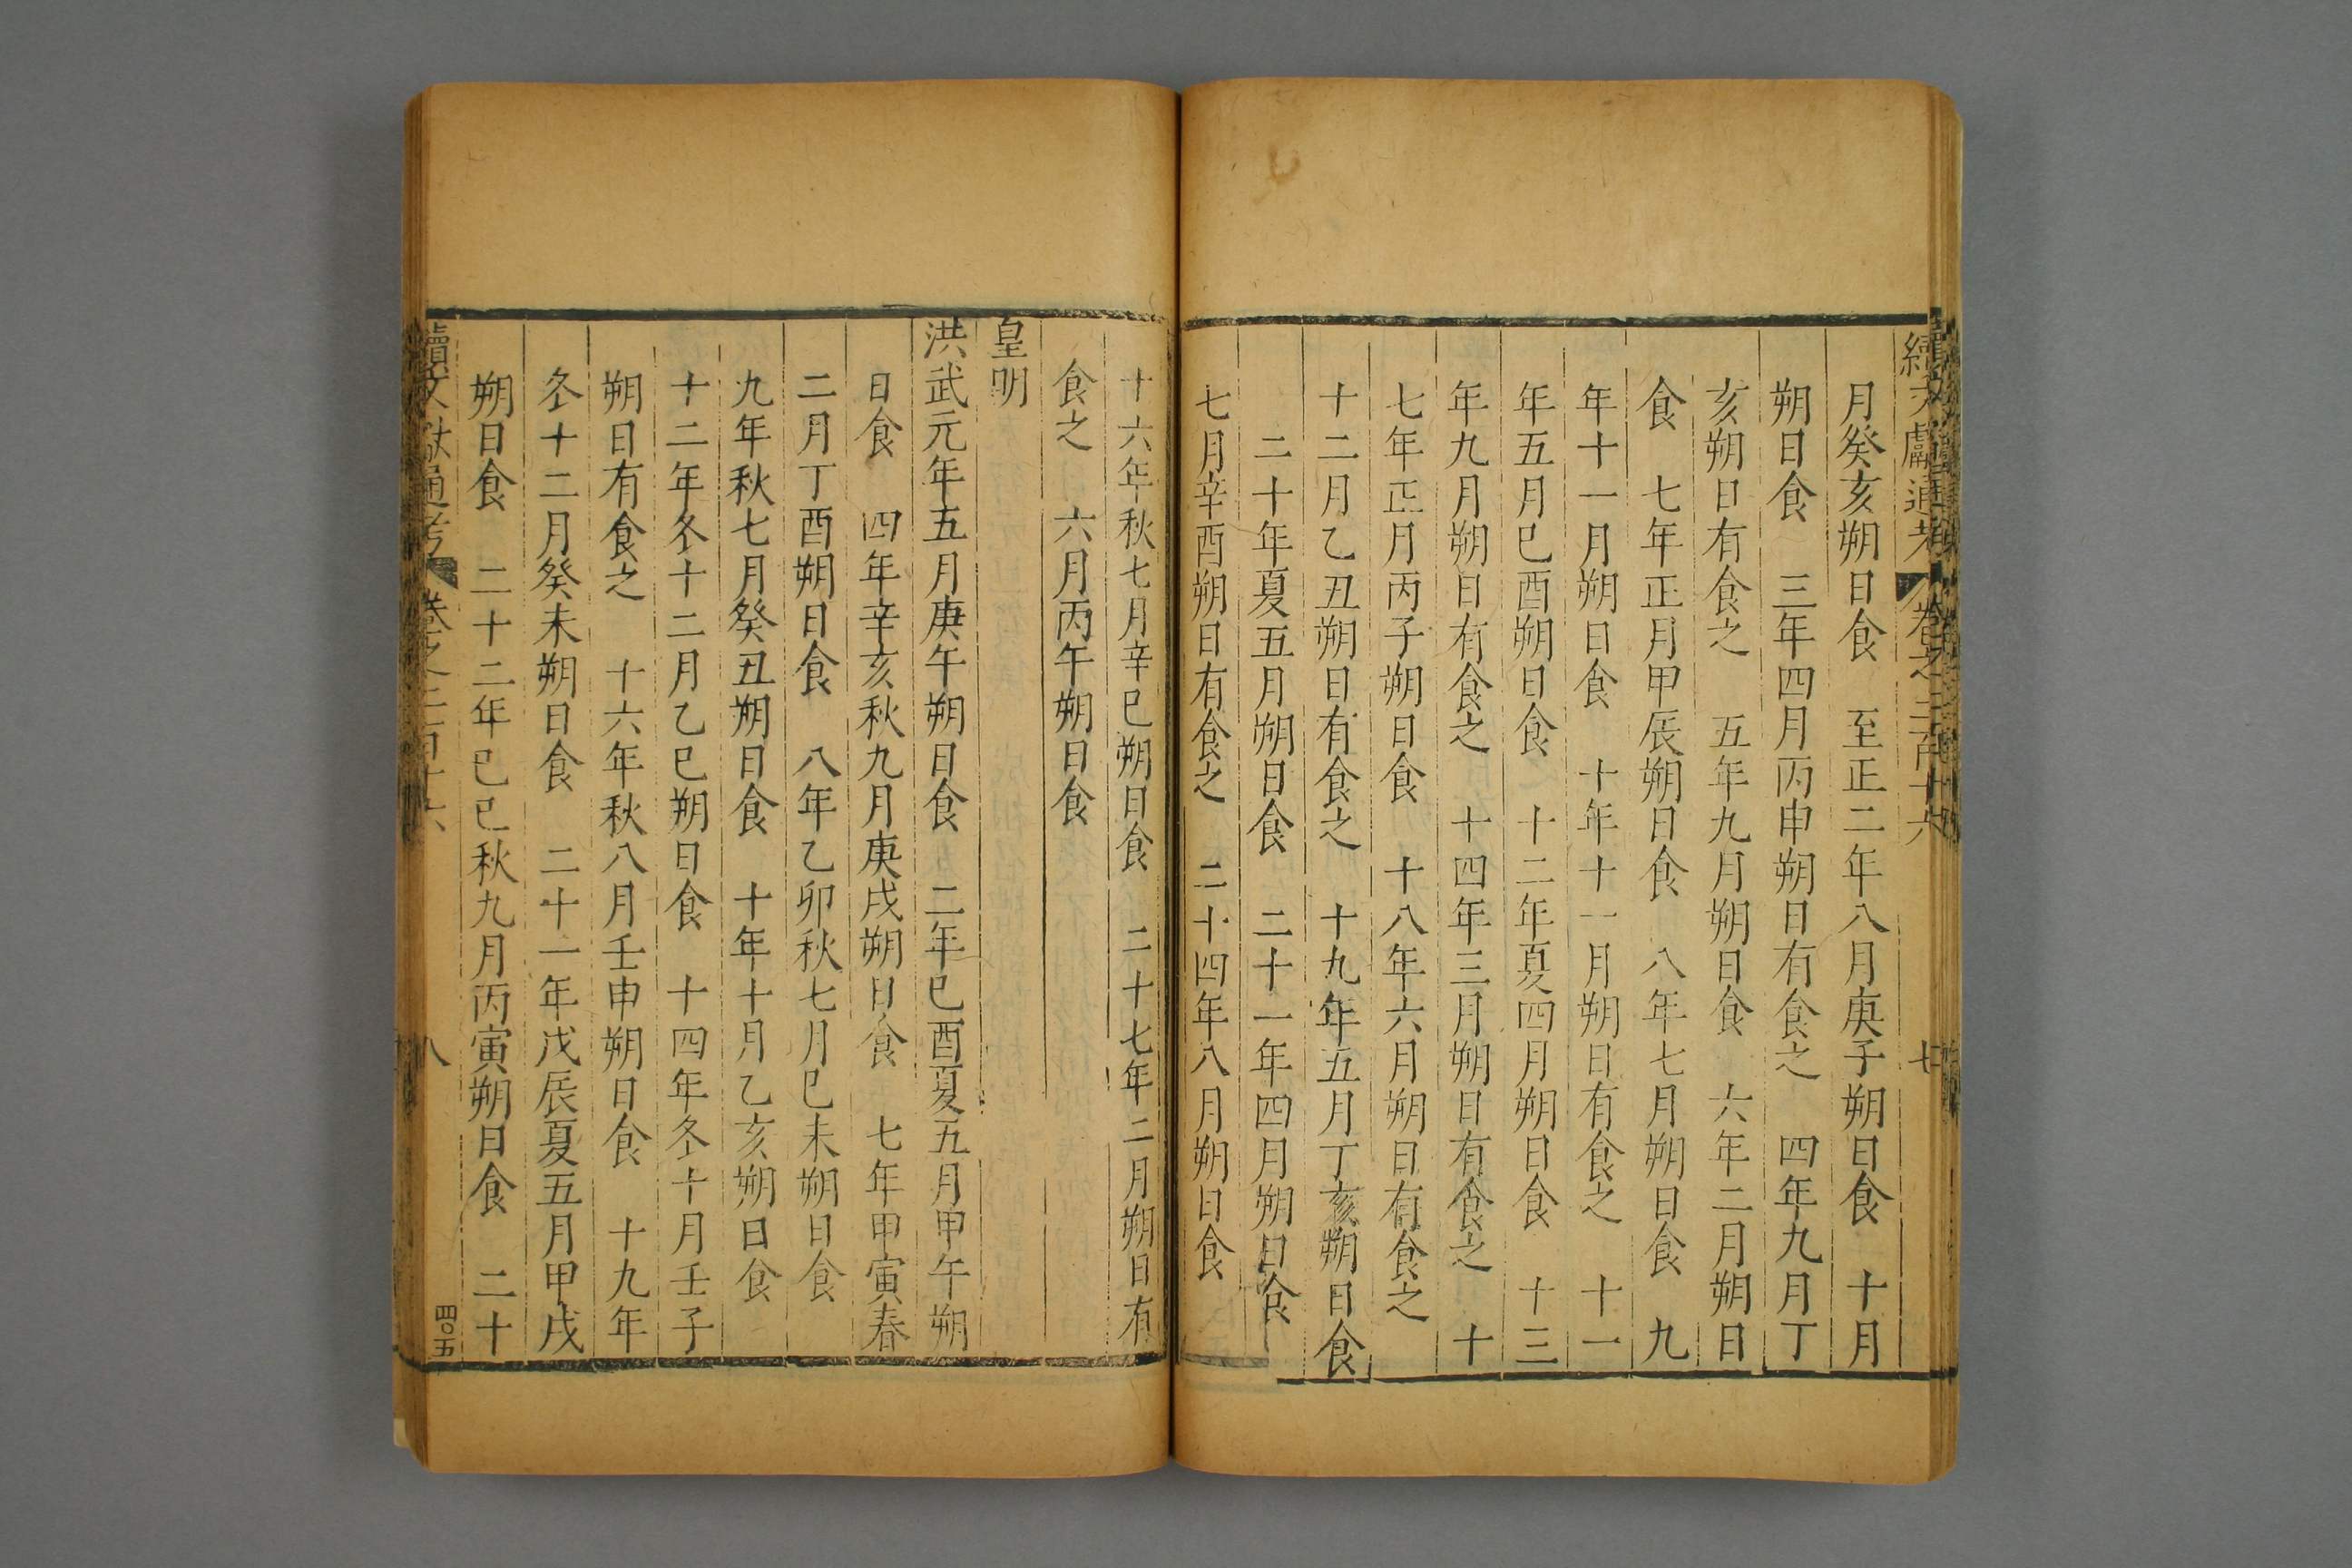 續文獻通考 卷之二百十六 七
月癸亥朔日食 至正二年八月庚子朔日食 十月
朔日食 三年四月丙申朔日有食之 四年九月丁
亥朔日有食之 五年九月朔日食 六年二月朔日
食 七年正月甲辰朔日食 八年七月朔日食 九
年十一月朔日食 十年十一月朔日有食之 十一
年五月巳酉朔日食 十二年夏四月朔日食 十三
年九月朔日有食之 十四年三月朔日有食之 十
七年正月丙子朔日食 十八年六月朔日有食之
十二月乙丑朔日有食之 十九年五月丁亥朔日食
二十年夏五月朔日食 二十一年四月朔日食
七月辛酉朔日有食之 二十四年八月朔日食
十六年秋七月辛巳朔日食 二十七年二月朔日有
食之 六月丙午朔日食
皇明
洪武元年五月庚午朔日食 二年巳酉夏五月甲午朔
日食 四年辛亥秋九月庚戌朔日食 七年甲寅春
二月丁酉朔日食 八年乙卯秋七月巳未朔日食
九年秋七月癸丑朔日食 十年十月乙亥朔日食
十二年冬十二月乙巳朔日食 十四年冬十月壬子
朔日有食之 十六年秋八月壬申朔日食 十九年
冬十二月癸未朔日食 二十一年戊辰夏五月甲戌
朔日食 二十二年巳巳秋九月丙寅朔日食 二十
續文獻通考 卷之二百十六 八 四〇五